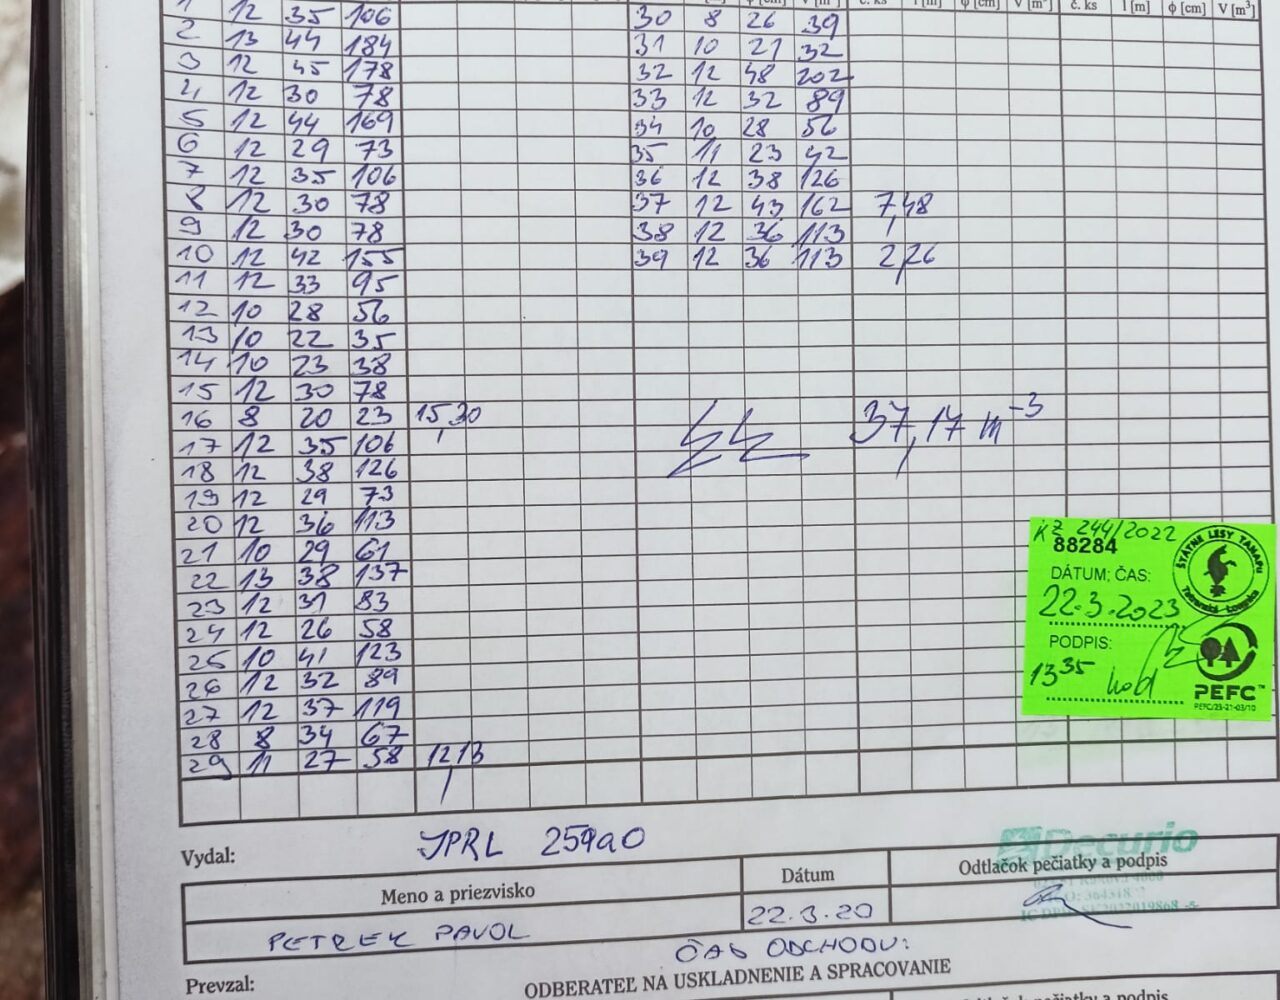 č. ks l [m] φ [cm] V [m³] č. ks l [m] φ [cm] V [m³]
1 12 35 106 30 8 26 39
2 13 44 184 31 10 21 32
3 12 45 178 32 12 48 202
4 12 30 78 33 12 32 89
5 12 44 169 34 10 28 56
6 12 29 73 35 11 23 42
7 12 35 106 36 12 38 126
8 12 30 78 37 12 43 162 7,48
9 12 30 78 38 12 36 113
10 12 42 155 39 12 36 113 2,26
11 12 33 95
12 10 28 56
13 10 22 35
14 10 23 38
15 12 30 78
16 8 20 23 15,30
37,17 m⁻³
17 12 35 106
18 12 38 126
19 12 29 73
20 12 36 113
21 10 29 61
22 13 38 137
23 12 31 83
24 12 26 58
25 10 41 123
26 12 32 89
27 12 37 119
28 8 34 67
29 11 27 58 12,13
KZ 244/2022
88284
ŠTÁTNE LESY TANAPu
Tatranská Lomnica
DÁTUM; ČAS:
22.3.2023
PODPIS:
13 35
PEFC™
PEFC/23-21-03/10
Vydal: JPRL 259a0
Decurio
Meno a priezvisko Dátum Odtlačok pečiatky a podpis
PETREK PAVOL 22.3.20
ČAS ODCHODU:
Prevzal: ODBERATEĽ NA USKLADNENIE A SPRACOVANIE
Odtlačok pečiatky a podpis